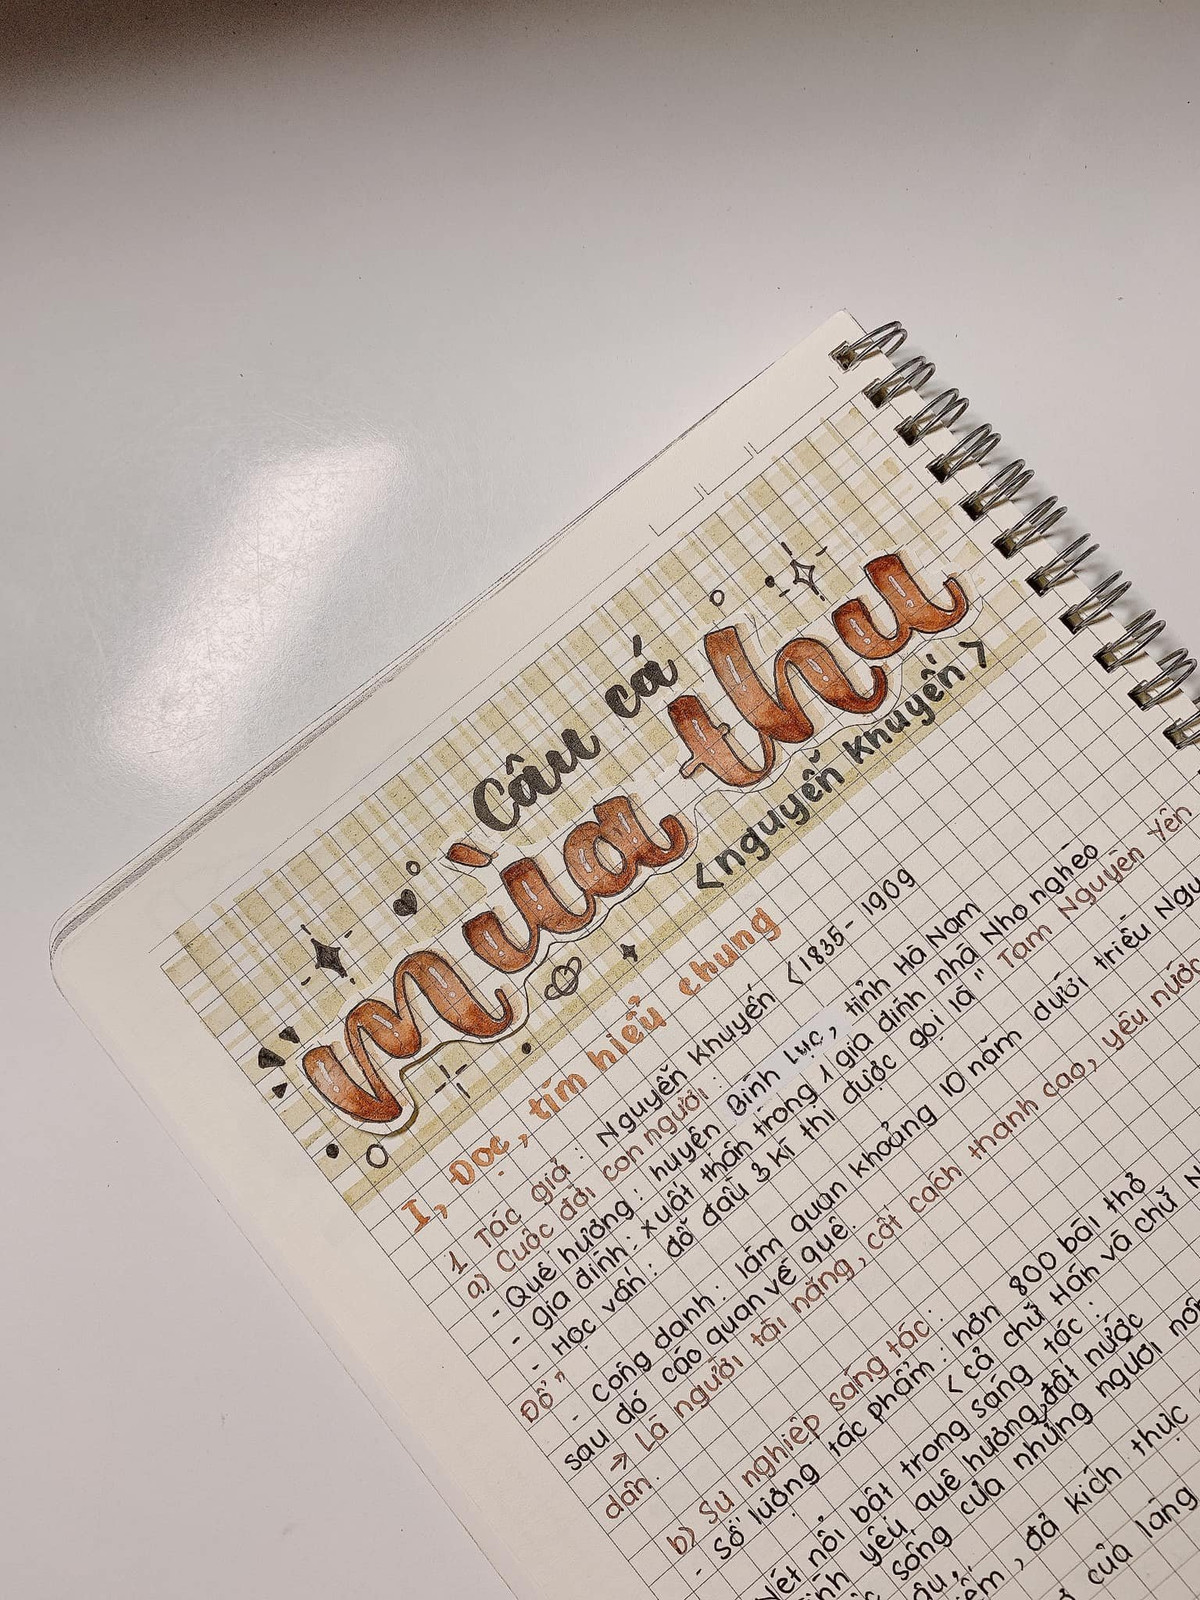 Câu cá
mùa thu
<nguyễn khuyến>
I, Đọc, tìm hiểu chung
1 Tác giả : Nguyễn Khuyến <1835- 1909
a) Cuộc đời con người :
- Quê hương : huyện Bình Lục, tỉnh Hà Nam
- gia đình : xuất thân trong 1 gia đình nhà Nho nghèo
- Học vấn : đỗ đầu 3 kì thi được gọi là " Tam Nguyên Yên
Đổ "
- Công danh : làm quan khoảng 10 năm dưới triều
sau đó cáo quan về quê.
→ Là người tài năng, cốt cách thanh cao, yêu nước
dân.
b) Sự nghiệp sáng tác :
- Số lượng tác phẩm : hơn 800 bài thơ
<cả chữ Hán và chữ
Nét nổi bật trong sáng tác :
yêu quê hương, đất nước
sống của những người
, đả kích
thực
của làng